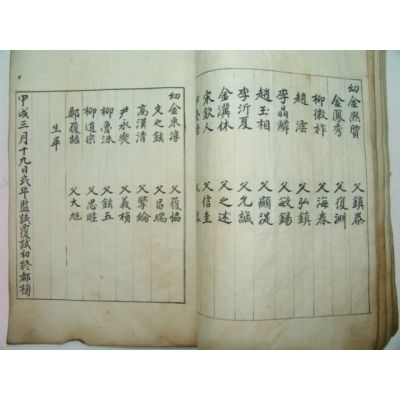 幼金熙質 父鎮泰
金鳳秀 父復淵
柳徽祚 父海春
趙澐 父弘鎮
李晶鱗 父敏錫
趙玉相 父顯湜
李沂夏 父允誠
金漢休 父之述
宋欽人 父信圭
幼金東淳 父履
文之鉉 父昌瑞
高漢清 父擎綸
尹永奭 父義楨
柳魯泳 父鉉五
柳道宗 父思睦
鄭履喆 父大旭
生畢
甲戌三月十九日式年監試覆試初終都榜